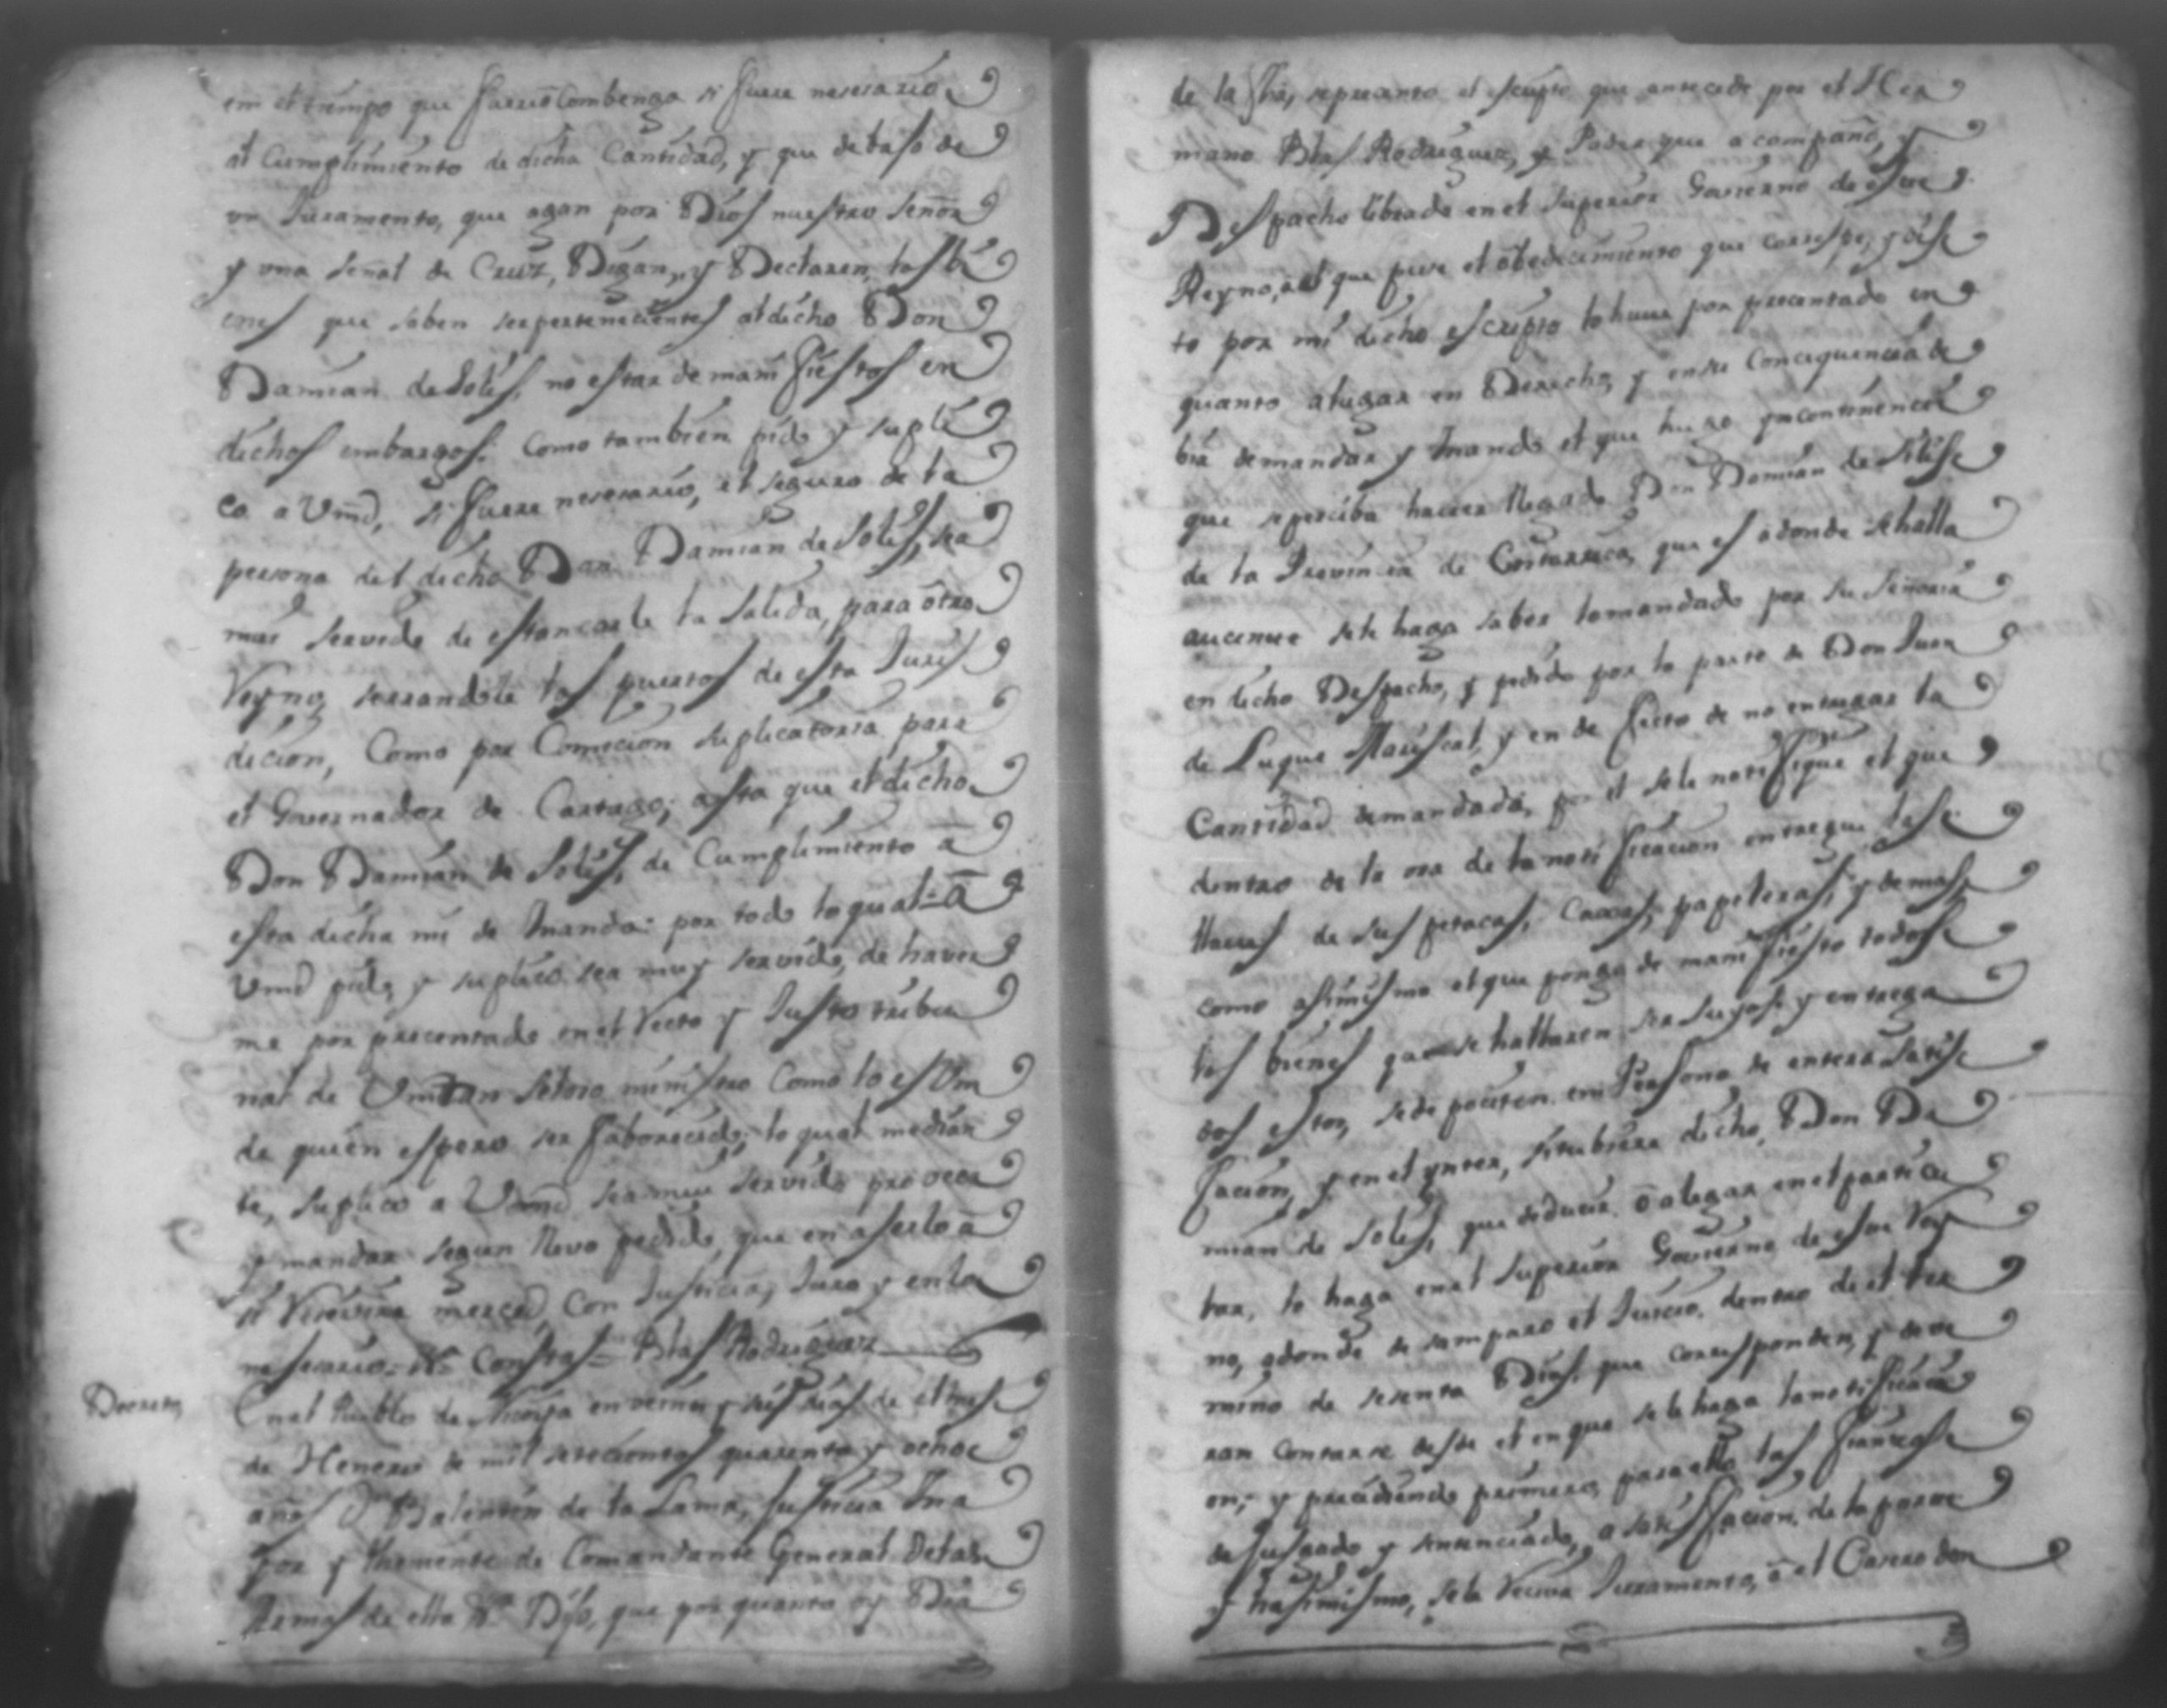 em el tiempo que Juzio Combenga si fuere nesesario
al Cumplimiento de dicha Cantidad, y que debajo de
un Juramento, que agan por Dios nuestro Señor
y una señal de Cruz, Digan, y Declaren, los bi
enes que saben ser pertenecientes al dicho Don
Damian de Solis, no estar de manifiestos en
dichos embargos. Como tambien pido y supli
co a Vmd, si fuere nesesario, el seguro de la
persona del dicho Don Damian de Solis, sea
mui servido de estancarle la Salida, para otro
Reyno, serrandole los puertos de esta Juris
dicion, Como por Comicion suplicatoria para
el Governador de Cartago; asta que el dicho
Don Damian de Solis, de Cumplimiento a
esta dicha mi demanda: por todo lo qual = A
Vmd pido, y suplico sea muy servido, de haver
me por precentado en el Recto y Justo tribu
nal de Vmd tan Seloso ministro Como lo es Vm
de quien espero ser faborecido; lo qual median
te, suplico a Vmd sea mui servido proveer
y mandar segun llevo pedido, que en aserlo a
si Resevire merced, Con Justicia, Juro y en lo
nesesario = Costas = Blas Rodriguez
Decreto
En el Pueblo de Nicoya en veinte y seis dias de el mes
de Henero de mil setecientos quarenta y ocho
años Dn Balentin de la Lama, Justicia Ma
yor y theniente de Comandante General de las
Armas de ella Dijo, que por quanto oy Dia
de la fha, se precento el escripto que antecede por el Her
mano Blas Rodriguez, y Poder que acompaño, y
Despacho librado en el Superior Govierno de este
Reyno, al que puse el obedecimiento que corresp, y vis
to por mi dicho escripto lo huve por precentado en
quanto a lugar en Derecho, y en su Conciquencia de
bia de mandar y Mando el que luego yncontinenti
que se perciba haver llegado Don Damian de Solis
de la Provincia de Costarrica, que es adonde se halla
aucente se le haga saber lo mandado por su Señoria
en dicho Despacho, y pedido por la parte de Don Juan
de Luque Mariscal, y en defecto de no entregar la
Cantidad demandada, por el se le notifique el que
dentro de la ora de la notificacion entregue las
llaves de sus petacas, Caxas, papeleras, y demas,
como asimismo el que ponga de manifiesto todos
los bienes que se hallaren ser suyos y entrega
dos estos, se depociten en Persona de entera satis
facion, y en el ynter, si tubiere dicho, Don Da
mian de Solis, que deducir, o alegar en el particu
lar, lo haga en el Superior Govierno de este Rey
no, adonde de samparo el Juicio, dentro de el ter
mino de sesenta Dias que corresponden, y deve
ran Contarse desde el en que se le haga la notificaci
on; y precidiendo primero, para ello las fianzas
de Jusgado y sentenciado, a satisfacion de la parte
y hasimismo, se le Reciva Juramento, a el Casero don